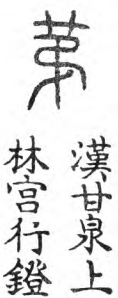 苐
漢甘泉上
林宮行鐙